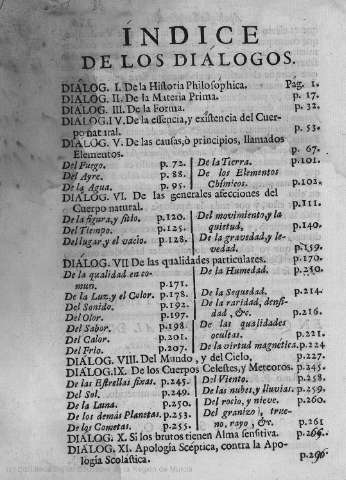 ÍNDICE
DE LOS DIÁLOGOS.
DIÁLOG. I. De la Historia Philosóphica. Pág. 1.
DIÁLOG. II. De la Materia Prima. p. 17.
DIÁLOG. III. De la Forma. p. 32.
DIÁLOG. IV. De la essencia, y existencia del Cuer-
po natural. p. 53.
DIÁLOG. V. De las causas, ò principios, llamados
Elementos. p. 67.
Del Fuego. p. 72.
Del Ayre. p. 88.
De la Agua. p. 95.
De la Tierra. p.101.
De los Elementos
Chímicos. p.102.
DIÁLOG. VI. De las generales afecciones del
Cuerpo natural. p.111.
De la figura, y sitio. p.120.
Del Tiempo. p.125.
Del lugar, y el vacío. p.128.
Del movimiento, y la
quietud, p.140.
De la gravedad, y le-
vedad. p.159.
DIÁLOG. VII De las qualidades particulares. p.170.
De la qualidad en co-
mun. p.171.
De la Luz, y el Color. p.178.
Del Sonido. p.192.
Del Olor. p.197.
Del Sabor. p.198
Del Calor. p.201.
Del Frio. p.207.
De la Humedad. p.210.
De la Sequedad. p.214.
De la raridad, densi-
dad, &c. p.216.
De las qualidades
ocultas. p.221
De la virtud magnética. p.224
DIÁLOG. VIII. Del Mundo, y del Cielo, p.227.
DIÁLOG. IX. De los Cuerpos Celestes, y Meteoros. p.245.
De las Estrellas fixas. p.245.
Del Sol. p.249.
De la Luna. p.250.
De los demás Planetas. p.253.
De los Cometas. p.255.
Del Viento. p.258.
De las nubes, y lluvias. p.259.
Del rocio, y nieve. p.260.
Del granizo, true-
no, rayo, &c. p.261
DIÁLOG. X. Si los brutos tienen Alma sensitiva. p.264.
DIÁLOG. XI. Apología Scéptica, contra la Apo-
logía Scolástica. p.296
Región de Murcia